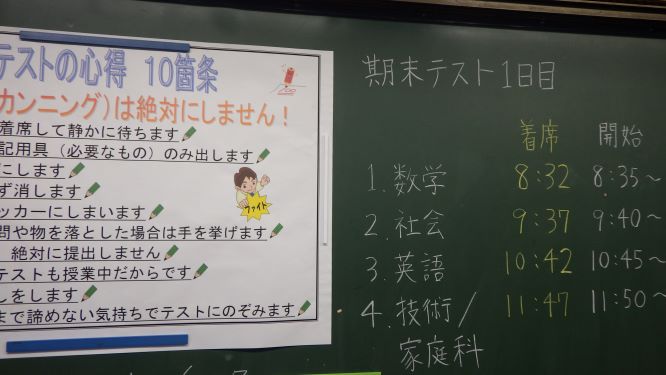 テストの心得 10箇条
カンニング)は絶対にしません!
着席して静かに待ちます
記用具(必要なもの)のみ出します
にします
ず消します
ッカーにしまいます
問や物を落とした場合は手を挙げます
絶対に提出しません
テストも授業中だからです
しをします
まで諦めない気持ちでテストにのぞみます
ファイト
期末テスト1日目
着席 開始
1.数学 8:32 8:35~
2.社会 9:37 9:40~
3.英語 10:42 10:45~
4.技術/ 11:47 11:50~
家庭科